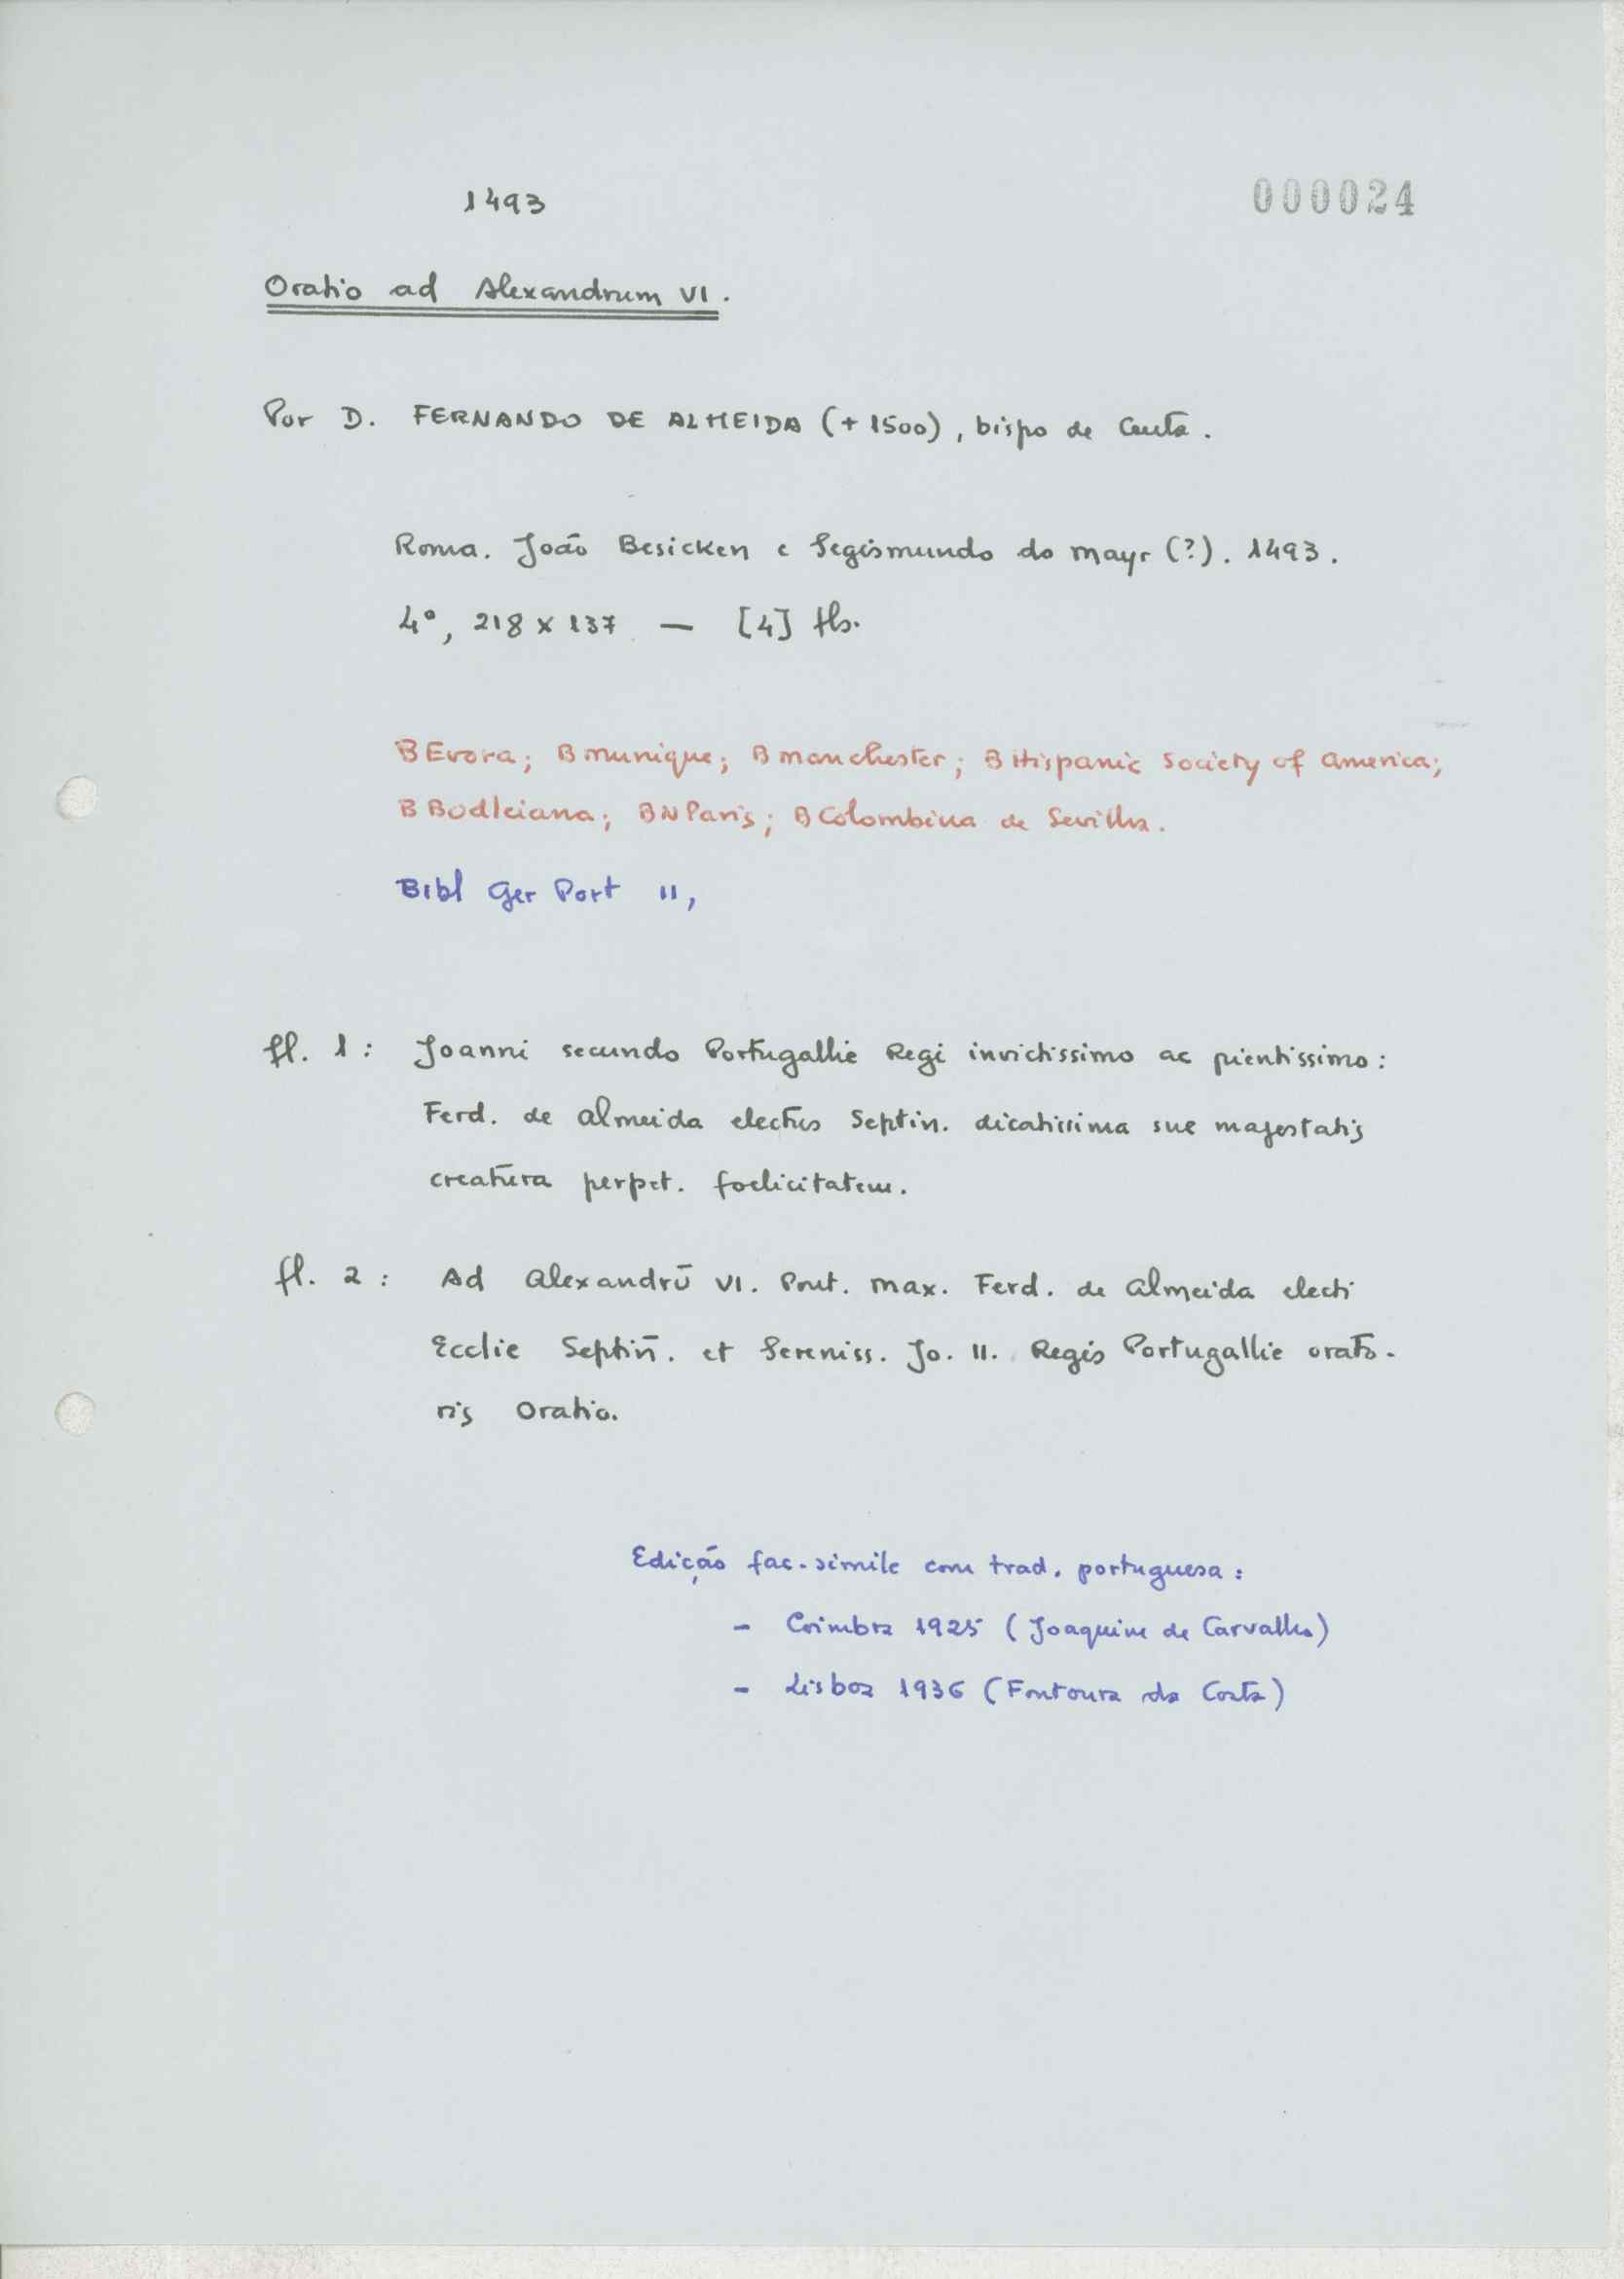 1493
000024
Oratio ad Alexandrum VI.
Por D. FERNANDO DE ALMEIDA (+ 1500), bispo de Ceuta.
Roma. João Besicken e Segismundo do Mayr (?). 1493.
4º, 218 x 137 — [4] fls.
B Evora; B Munique; B Manchester; B Hispanic Society of America;
B Bodleiana; BN Paris; B Colombina de Sevilha.
Bibl Ger Port II,
fl. 1: Joanni secundo Portugallie Regi invictissimo ac pientissimo:
Ferd. de Almeida electus Septin. dicatissima sue majestatis
creatura perpet. foelicitatem.
fl. 2: Ad Alexandrū VI. Pont. Max. Ferd. de Almeida electi
Ecclie Septiñ. et Sereniss. Jo. II. Regis Portugallie orato-
ris Oratio.
Edição fac-simile com trad. portuguesa:
- Coimbra 1925 (Joaquim de Carvalho)
- Lisboa 1936 (Fontoura da Costa)